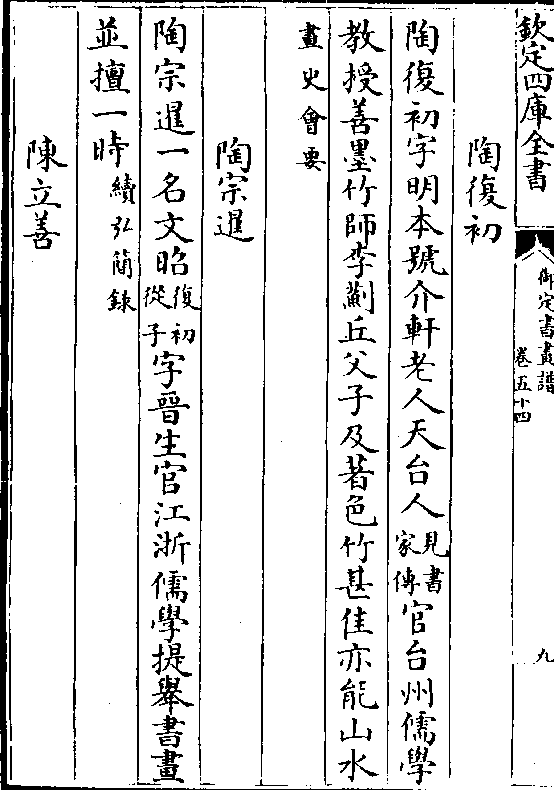 欽定四庫全書
御定書畫譜
卷五十四
九
陶復初
陶復初字明本號介軒老人天台人見書家傳官台州儒學
教授善墨竹師李薊丘父子及著色竹甚佳亦能山水
畫史會要
陶宗暹
陶宗暹一名文昭復初從子字晉生官江浙儒學提舉書畫
並擅一時續弘簡錄
陳立善